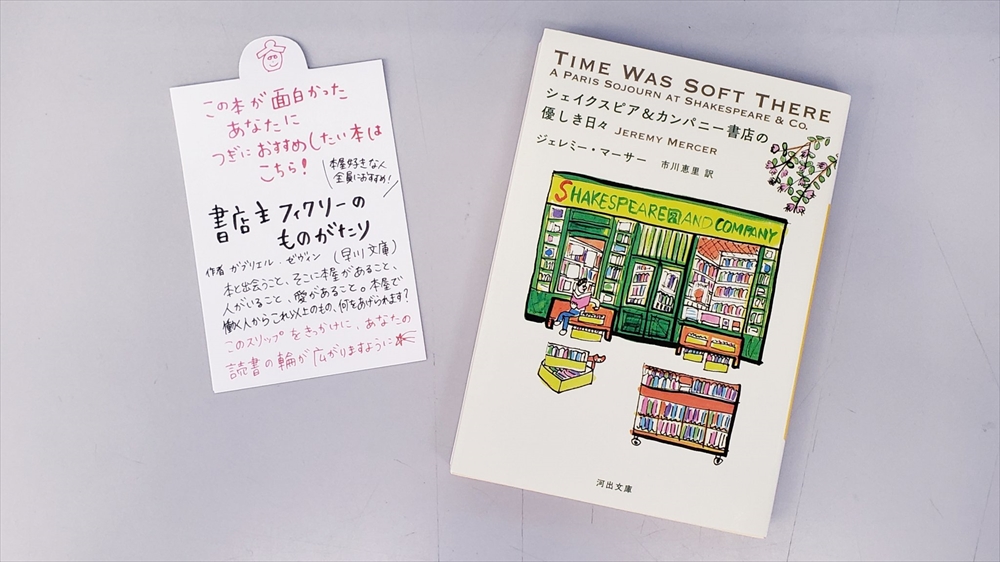 この本が面白かった
あなたに
つぎにおすすめしたい本は
こちら!
本屋好きな人
全員におすすめ!
書店主フィクリーの
ものがたり
作者 ガブリエル・ゼヴィン (早川文庫)
本と出会うこと、そこに本屋があること、
人がいること、愛があること。本屋で
働く人からこれ以上のもの、何をあげられます?
このスリップをきっかけに、あなたの
読書の輪が広がりますように
TIME WAS SOFT THERE
A PARIS SOJOURN AT SHAKESPEARE & CO.
シェイクスピア&カンパニー書店の
優しき日々 JEREMY MERCER
ジェレミー・マーサー 市川恵里 訳
SHAKESPEARE AND COMPANY
河出文庫